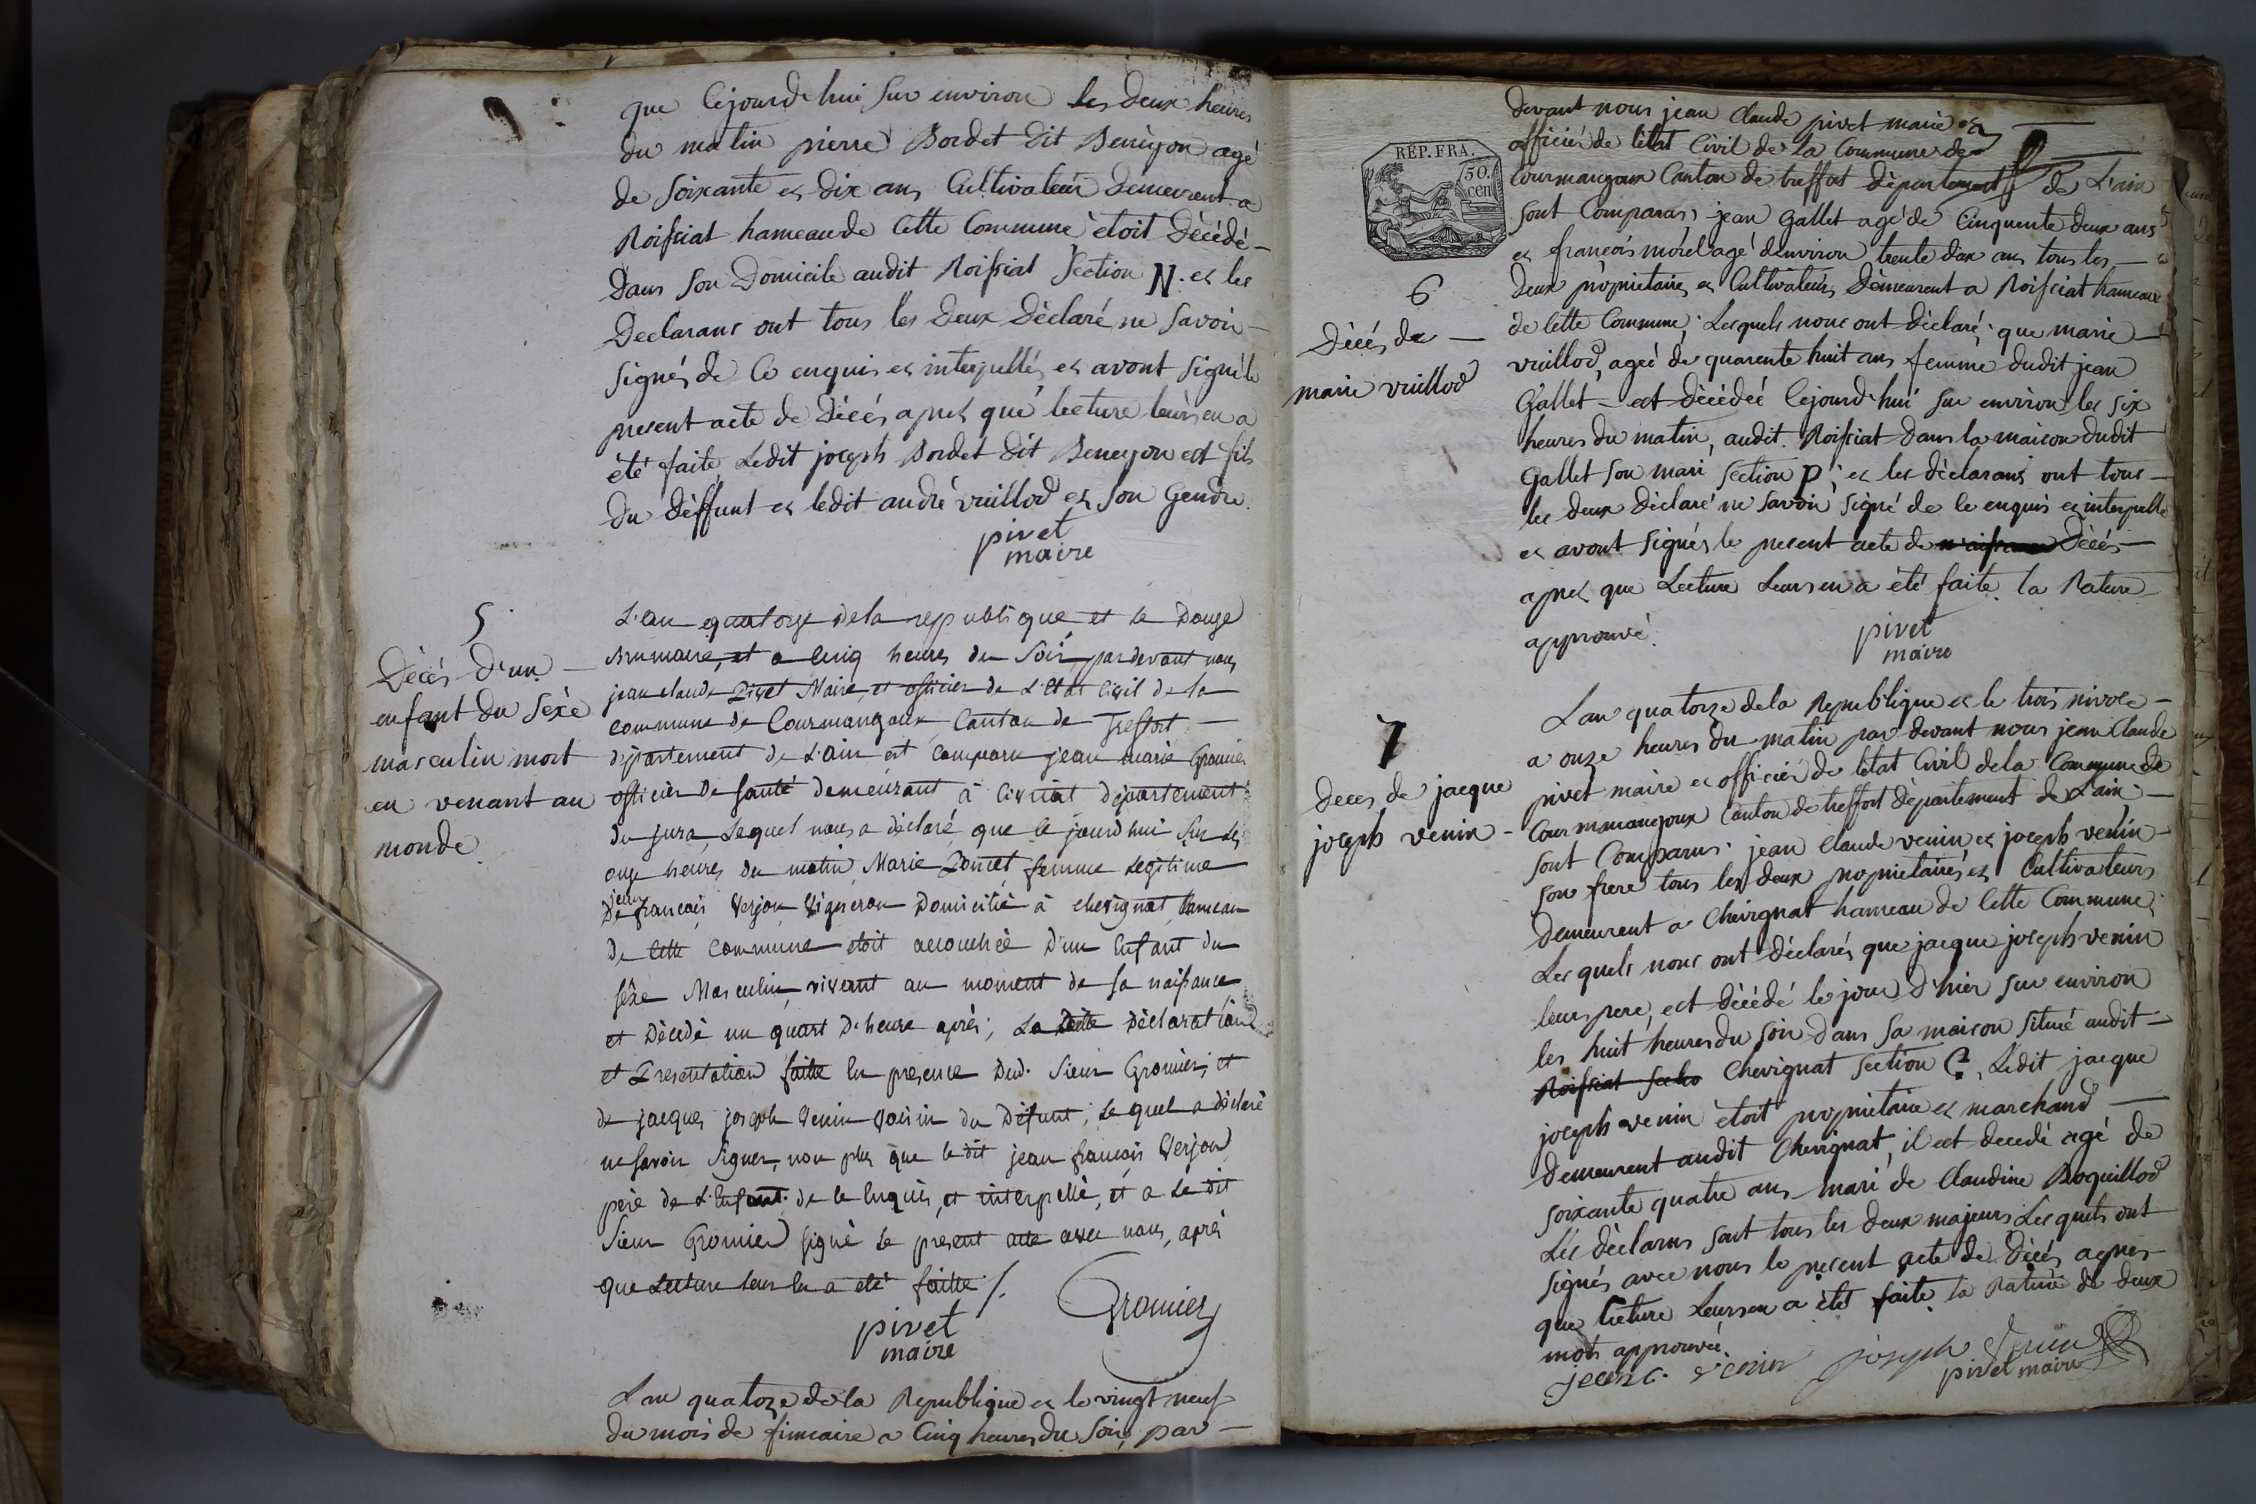 que cejourd'hui sur environ les deux heures
du matin pierre Bordet dit Benèyon agé
de soixante et dix ans Cultivateur demeurent a
Roissiat hameau de Cette Commune ètoit dècèdè
dans son domicile audit Roissiat Section N. et les
declarans ont tous les deux dèclaré ne savoir
signés de ce enquis et interpellés et avont signé le
present acte de dècès après que lecture leur en a
été faite, Ledit joseph Bordet dit Beneyon est fils
du deffunt et ledit andré vuillod et son Gendre.
pivet
maire
5
Dècés d'un
enfant du sèxe
masculin mort
en venant au
monde.
L'an quatorze de la republique, et le Douze
Brumaire, et a Cinq heures du Soir, par devant nous
jean claude Pivet Maire, et officier de L'Etat Civil de la
commune de Courmangoux Canton de Treffort
dèpartement de L'ain est comparu jean marie Gromier
officier De santé demeurant à Civriat département
du jura, Lequel nous a dèclaré, que ce jourd'hui sur les
onze heures du matin, Marie Poncet femme Legitime
jean
De francois Verjon Vigneron Domicilié à chevignat hameau
De Cette commune etoit accouchèe D'un Enfant du
sêxe Masculin, vivant au moment de sa naissance
et Dècedè un quart D'heure après; La dite Dèclaration
et Presentation faitte En presence Dud. Sieur Gromier, et
de jacques joseph Venin Voisin du Défunt, le quel a dèclaré
ne savoir signer, non plus que le dit jean francois Verjon
père de L'Enfant. de ce Enquis, et interpellé, et a Le dit
Sieur Gromier signé Le present acte avec nous, après
que Lecture leur En a eté faitte /.
pivet
maire
Gromier
L'an quatorze de la Republique et le vingt neuf
du mois de frimaire a Cinq heures du Soir, par
REP. FRA.
50.
cen
6
Dècés de
marie vuillod
devant nous jean Claude pivet marie et
officier de l'état Civil de la Commune de
Courmangoux Canton de treffort dèpartement de L'ain
sont Comparus jean Gallet agé de Cinquente deux ans
et francois morel agé d'environ trente dix ans tous les
deux propriétaires et Cultivateurs demeurent a Roissiat hameau
de Cette Commune; Lesquels nous ont dèclaré, que marie
vuillod, ageé de quarente huit ans femme dudit jean
Gallet est dècèdèe cejourd'hui sur environ les six
heures du matin, audit Roissiat dans la maison dudit
Gallet son mari section P; et les dèclarans ont tous
les deux dèclaré ne savoir signé de ce enquis et interpellé
et avont signés le present acte de naissance Dècés
après que Lecture Leurs en a été faite. la Rature
approuvé.
pivet
maire
7
deces de jacque
joseph venin
L'an quatorze de la Republique et le trois nivose
a onze heures du matin par devant nous jean Claude
pivet maire et officier de l'état Civil de la Commune de
Courmmangoux Canton de treffort dèpartement de L'ain
sont Comparus jean Claude venin et joseph venin
son frere tous les deux propriétaires et Cultivateurs
demeurent a Chevignat hameau de Cette Commune;
Lesquels nous ont dèclarés que jacque joseph venin
leur pere, est dècèdé le jour d'hier sur environ
les huit heures du soir dans sa maison situé audit
Roissiat Sectio Chevignat Section C., Ledit jacque
joseph venin ètoit propriétaire et marchand
demeurent audit Chevignat, il est decedè agé de
soixante quatre ans mari de Claudine Boquillod
Les dèclarans sont tous les deux majeurs Lesquels ont
signés avec nous le present acte de dècés après
que Lecture Leurs en a été faite. la Rature de deux
mots approuvé.
jean C. venin
joseph Venin
pivet maire